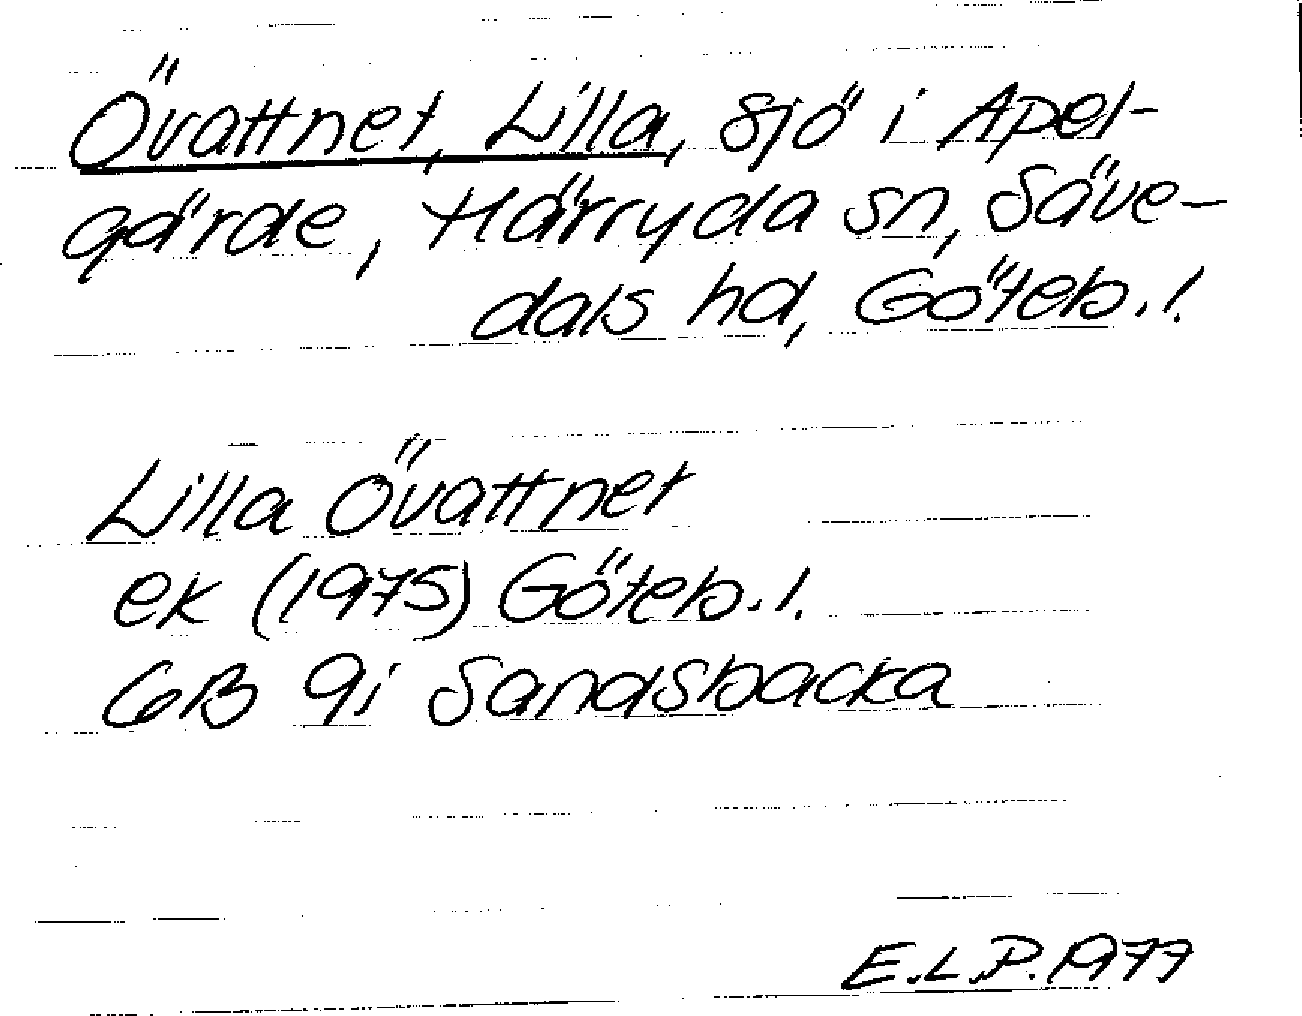 Övattnet, Lilla, sjö i Apel-
gärde, Härryda sn, Säve-
dals hd, Göteb. l.
Lilla Övattnet
ek (1975) Göteb. l.
6B 9i Sandsbacka
E.L.P. 1977